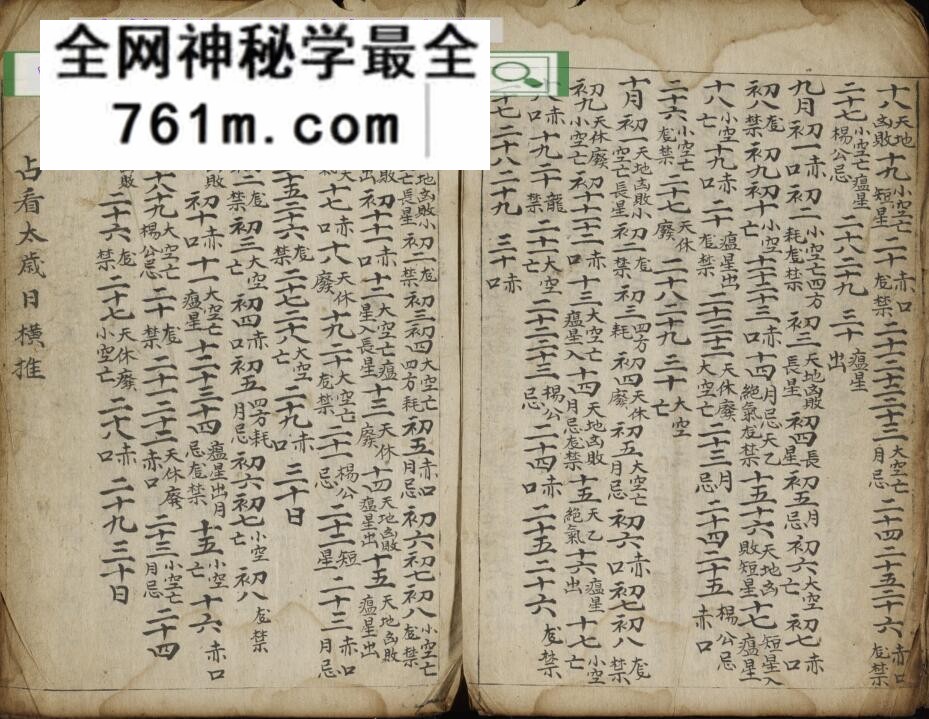 全网神秘学最全
761m.com
十八天地凶敗十九小空亡短星二十赤口瘟禁二十一二十二二十三月忌大空亡二十四二十五二十六赤口瘟禁
二十七小空亡瘟星楊公忌二十八二十九三十瘟星出
九月初一赤口初二小空亡四方耗瘟禁初三天地凶敗長星初四長星初五月忌初六大空亡初七赤口
初八瘟禁初九初十小空亡十一十二十三赤口十四月忌天乙絕氣瘟禁十五十六天地凶敗短星十七短星入瘟星
十八小空亡十九赤口二十瘟星出瘟禁二十一二十二天休廢大空亡二十三月忌二十四二十五楊公忌赤口
二十六小空亡瘟禁二十七天休廢二十八二十九三十大空亡
十月初一天地凶敗小空亡長星初二瘟禁初三四方耗初四天休廢初五大空亡月忌初六赤口初七初八瘟禁
初九天休廢小空亡初十十一十二赤口十三大空亡瘟星入十四天地凶敗月忌瘟禁十五天乙絕氣十六瘟星出十七小空亡
十八赤口十九二十龍禁二十一大空亡二十二二十三楊公忌二十四赤口二十五二十六瘟禁
十七二十八二十九三十赤口
初二瘟禁初三初四大空亡四方耗初五赤口月忌初六初七初八小空亡瘟禁
初十一赤口十二大空亡瘟星入長星十三天休廢十四天地凶敗瘟星出十五天地凶敗瘟星出
十七赤口十八天休廢十九二十大空亡瘟禁二十一楊公忌二十二短星二十三赤口月忌
二十五二十六瘟禁二十七二十八大空亡二十九赤口三十日
初二瘟禁初三大空亡初四赤口初五四方耗月忌初六初七小空亡初八瘟禁
初十赤口十一大空亡瘟星十二十三十四瘟星出月忌瘟禁十五小空亡十六赤口
十八十九大空亡楊公忌二十瘟禁二十一二十二天休廢赤口二十三小空亡月忌二十四
二十六瘟禁二十七天休廢小空亡二十八赤口二十九三十日
占看太歲日橫推